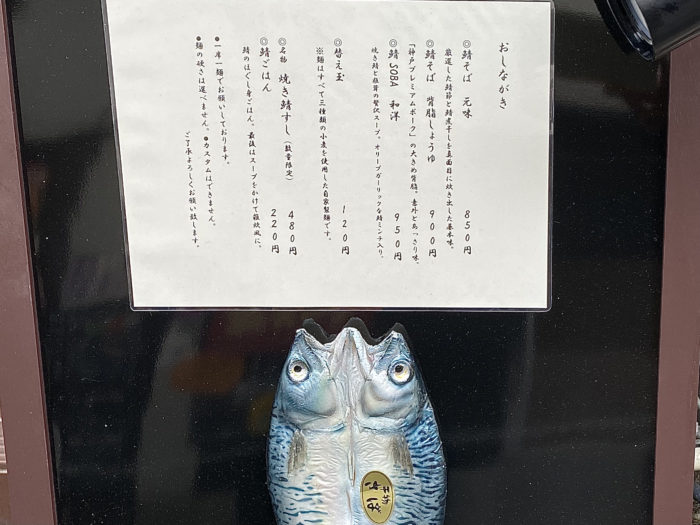 おしながき
◎鯖そば 元味 850円
厳選した鯖節と鯖煮干しを真面目に炊き出した基本味。
◎鯖そば 背脂しょうゆ 900円
「神戸プレミアムポーク」の大きめ背脂。意外とあっさり味。
◎鯖SOBA 和洋 950円
焼き鯖と椎茸の贅沢スープ。オリーブガーリックな鯖ミンチ入り。
◎替え玉 120円
※麺はすべて三種類の小麦を使用した自家製麺です。
◎名物 焼き鯖すし(数量限定) 480円
◎鯖ごはん 220円
鯖のほぐし身ごはん。最後はスープをかけて雑炊風に。
●一席一麺でお願いしております。
●麺の硬さは選べません。●カスタムはできません。
ご了承よろしくお願い致します。